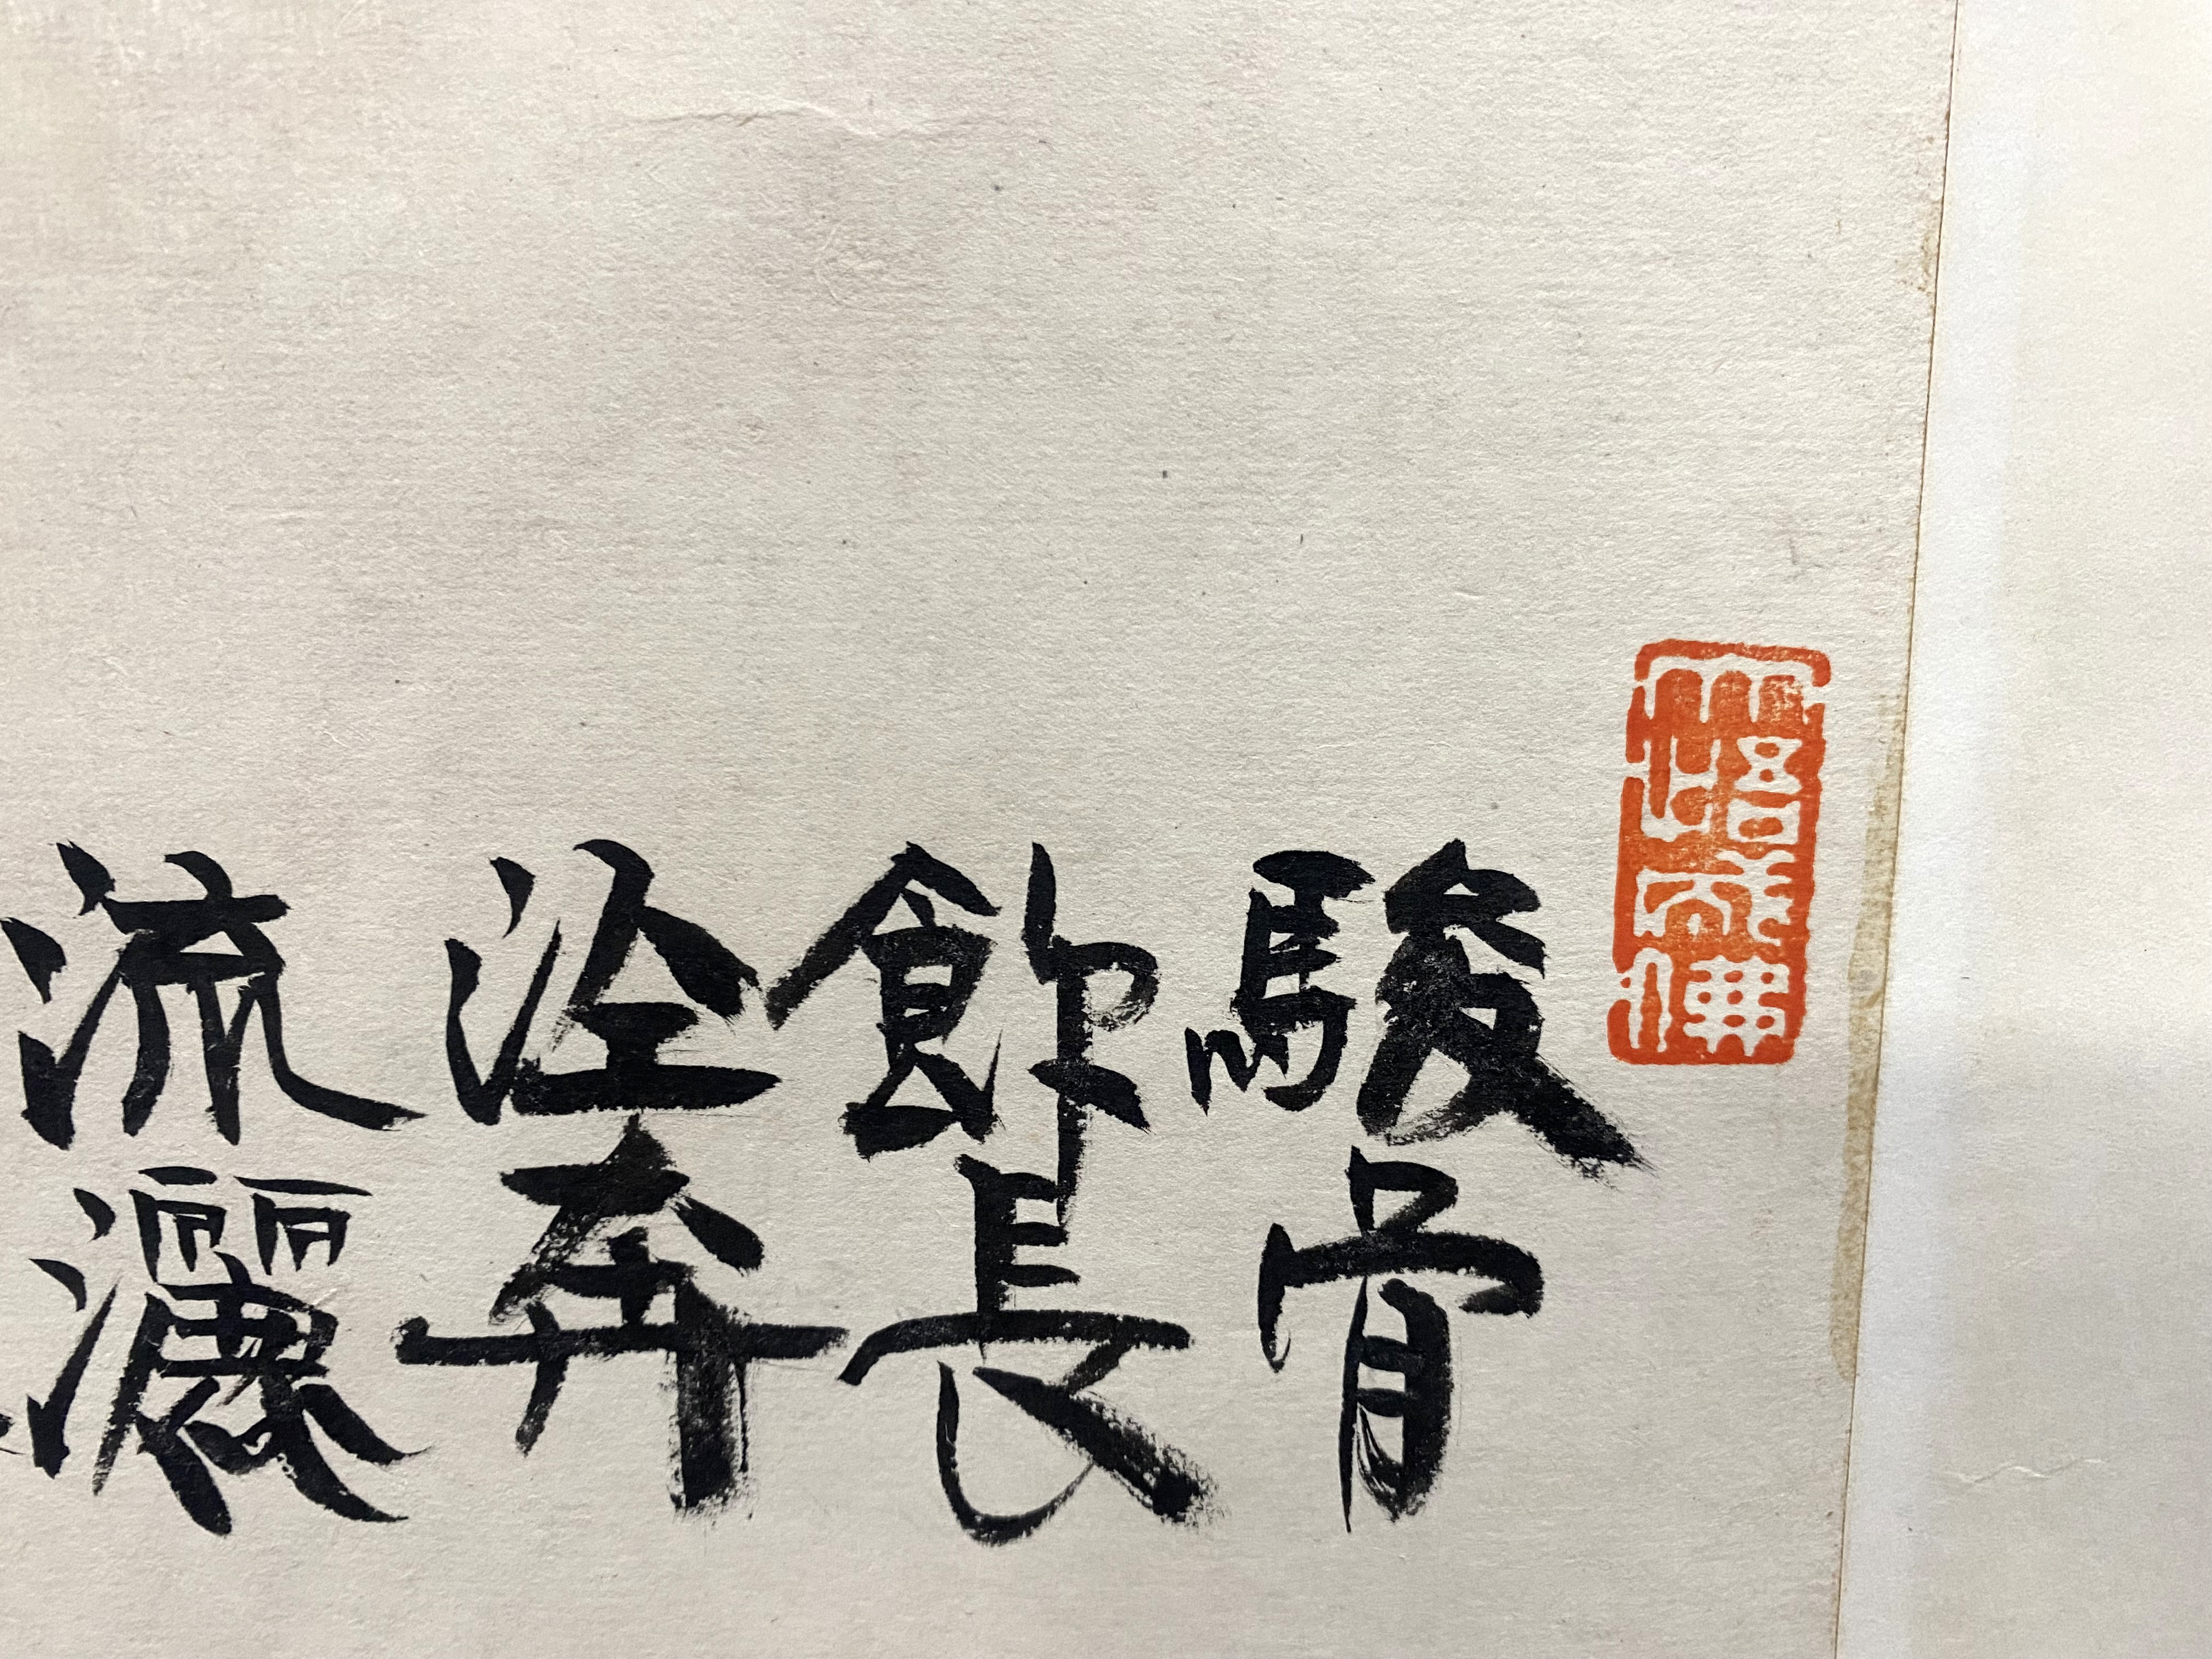 駿骨
飲長
涇奔
流灑